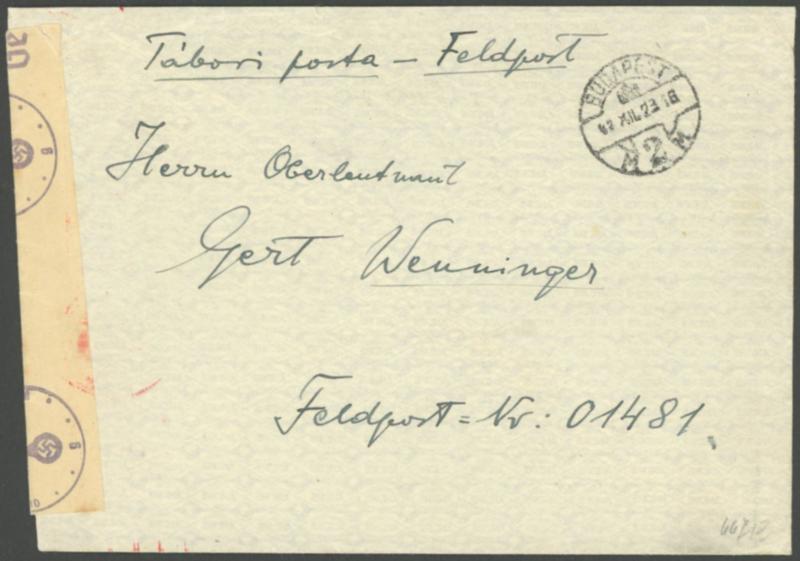 Tábori posta - Feldpost
BUDAPEST
42 XII. 23 18
M 2 M
Herrn Oberleutnant
Gert Wenninger
Feldpost=Nr: 01481,
g
g